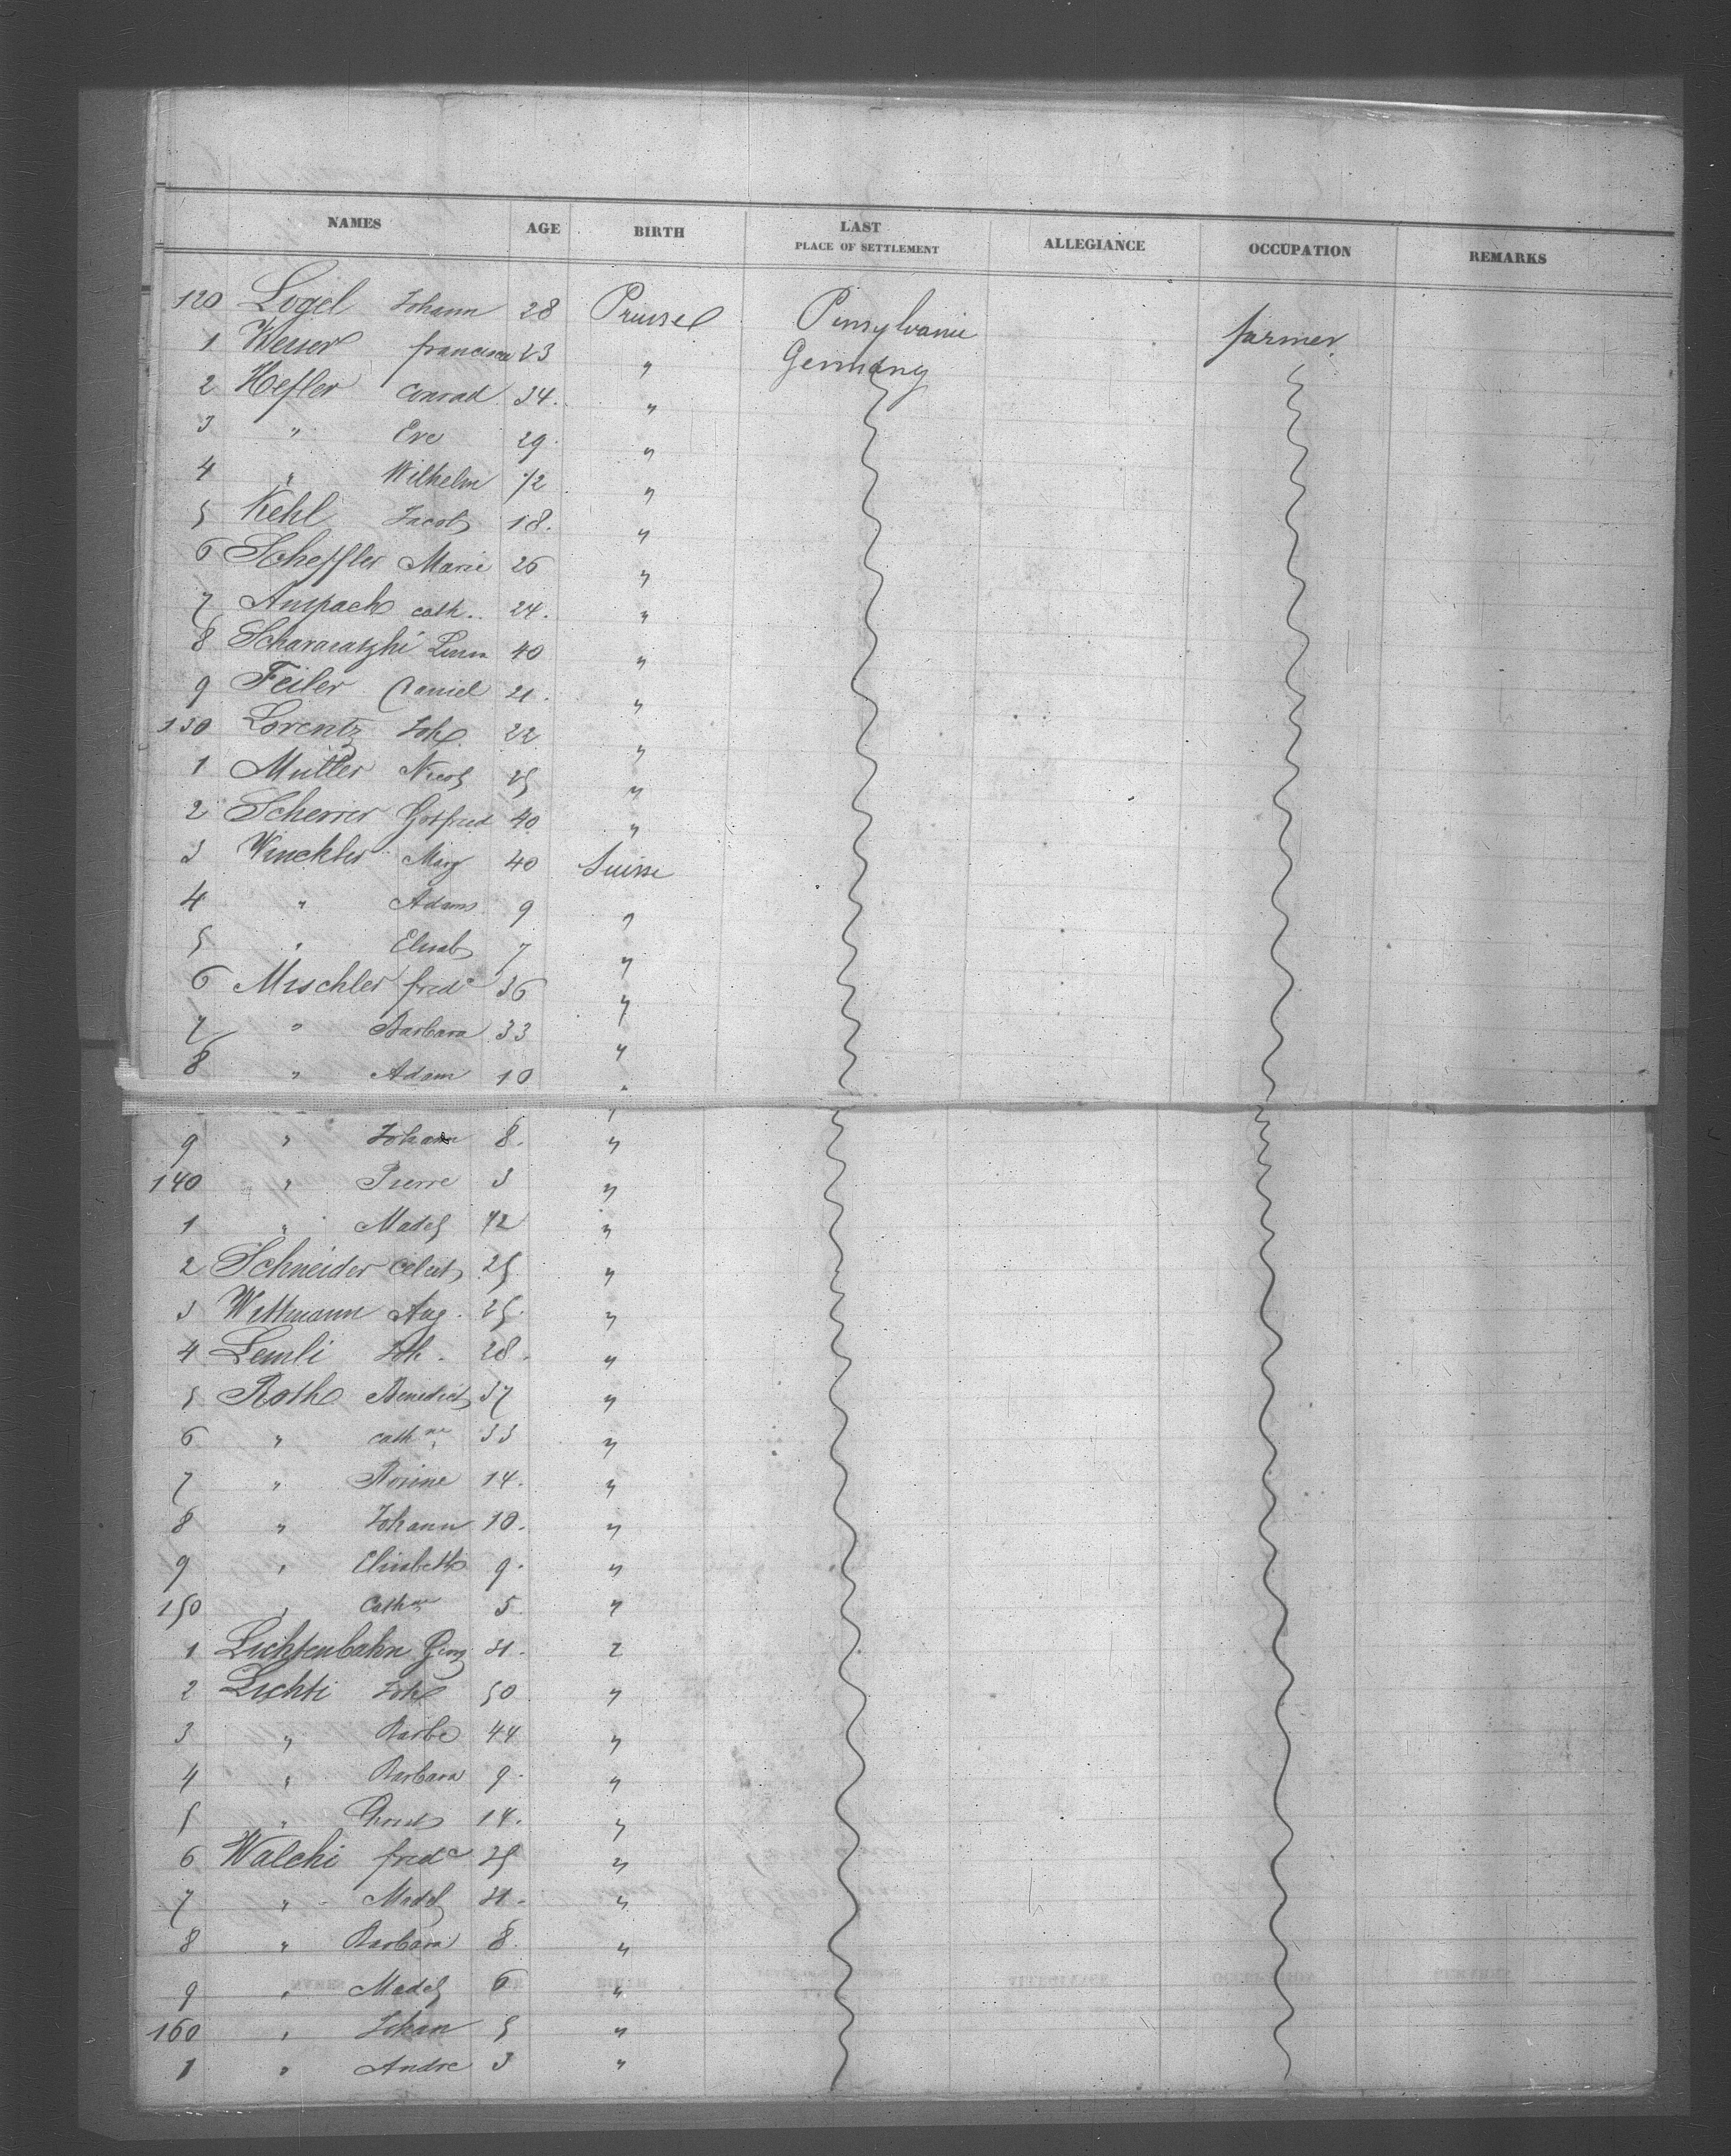 NAMES AGE BIRTH LAST PLACE OF SETTLEMENT ALLEGIANCE OCCUPATION REMARKS
120 Logel Johann 28 Prusse Pensylvanie farmer
1 Weiser francisca 23 " Germany
2 Hefler Conrad 34. "
3 " Eve 29. "
4 " Wilhelm 72 "
5 Kehl Jacob 18. "
6 Scheffler Marie 26 "
7 Anspach cath.. 24. "
8 40 "
9 Feiler Daniel 21. "
130 Lorentz Joh. 22 "
1 Muller Nicol 25 "
2 Scherrer Gotfried 40 "
3 Winckler Marg 40 Suisse
4 " Adam 9 "
5 " Elisab 7 "
6 Mischler fredc 36 "
7 " Barbara 33 "
8 " Adam 10 "
9 " Johann 8. "
140 " Pierre 3 "
1 " Madel "
2 Schneider 25 "
3 Wittmann Aug. 25. "
4 Lemli Joh. 28. "
5 Roth Benedict 37 "
6 " cathne 33 "
7 " Rosine 14. "
8 " Johann 10. "
9 " Elisabeth 9. "
150 " Cathne 5 "
1 Lichtenbahn Georg 31. "
2 Lichti Joh 50 "
3 " Barbe 44 "
4 " Barbara 9. "
5 " 14. "
6 Walchi fredc "
7 " Madel 31. "
8 " Barbara 8. "
9 " Madel 6 "
160 " Johan 5 "
1 " Andre 3 "